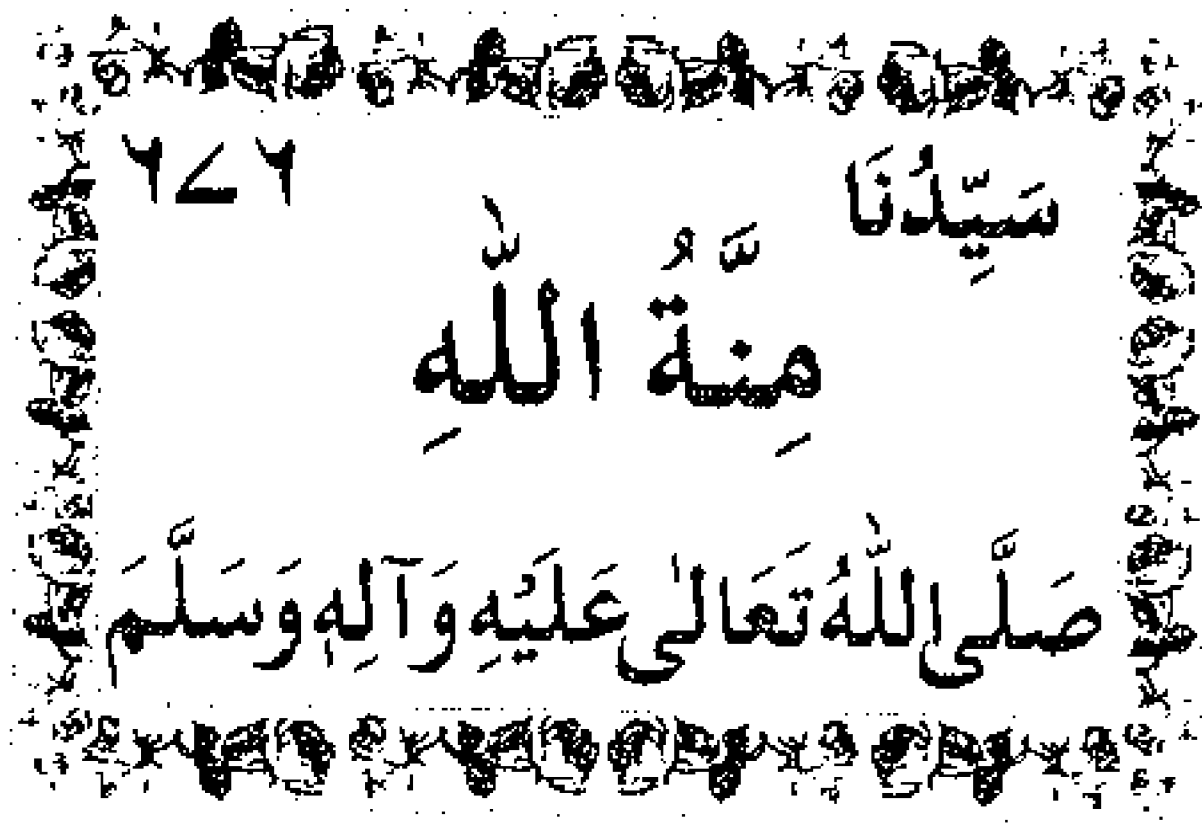 سَيِّدُنَا ۶۷۶
مِنَّةُ اللّٰهِ
صَلَّى اللّٰهُ تَعَالٰى عَلَيْهِ وَآلِهٖ وَسَلَّمَ